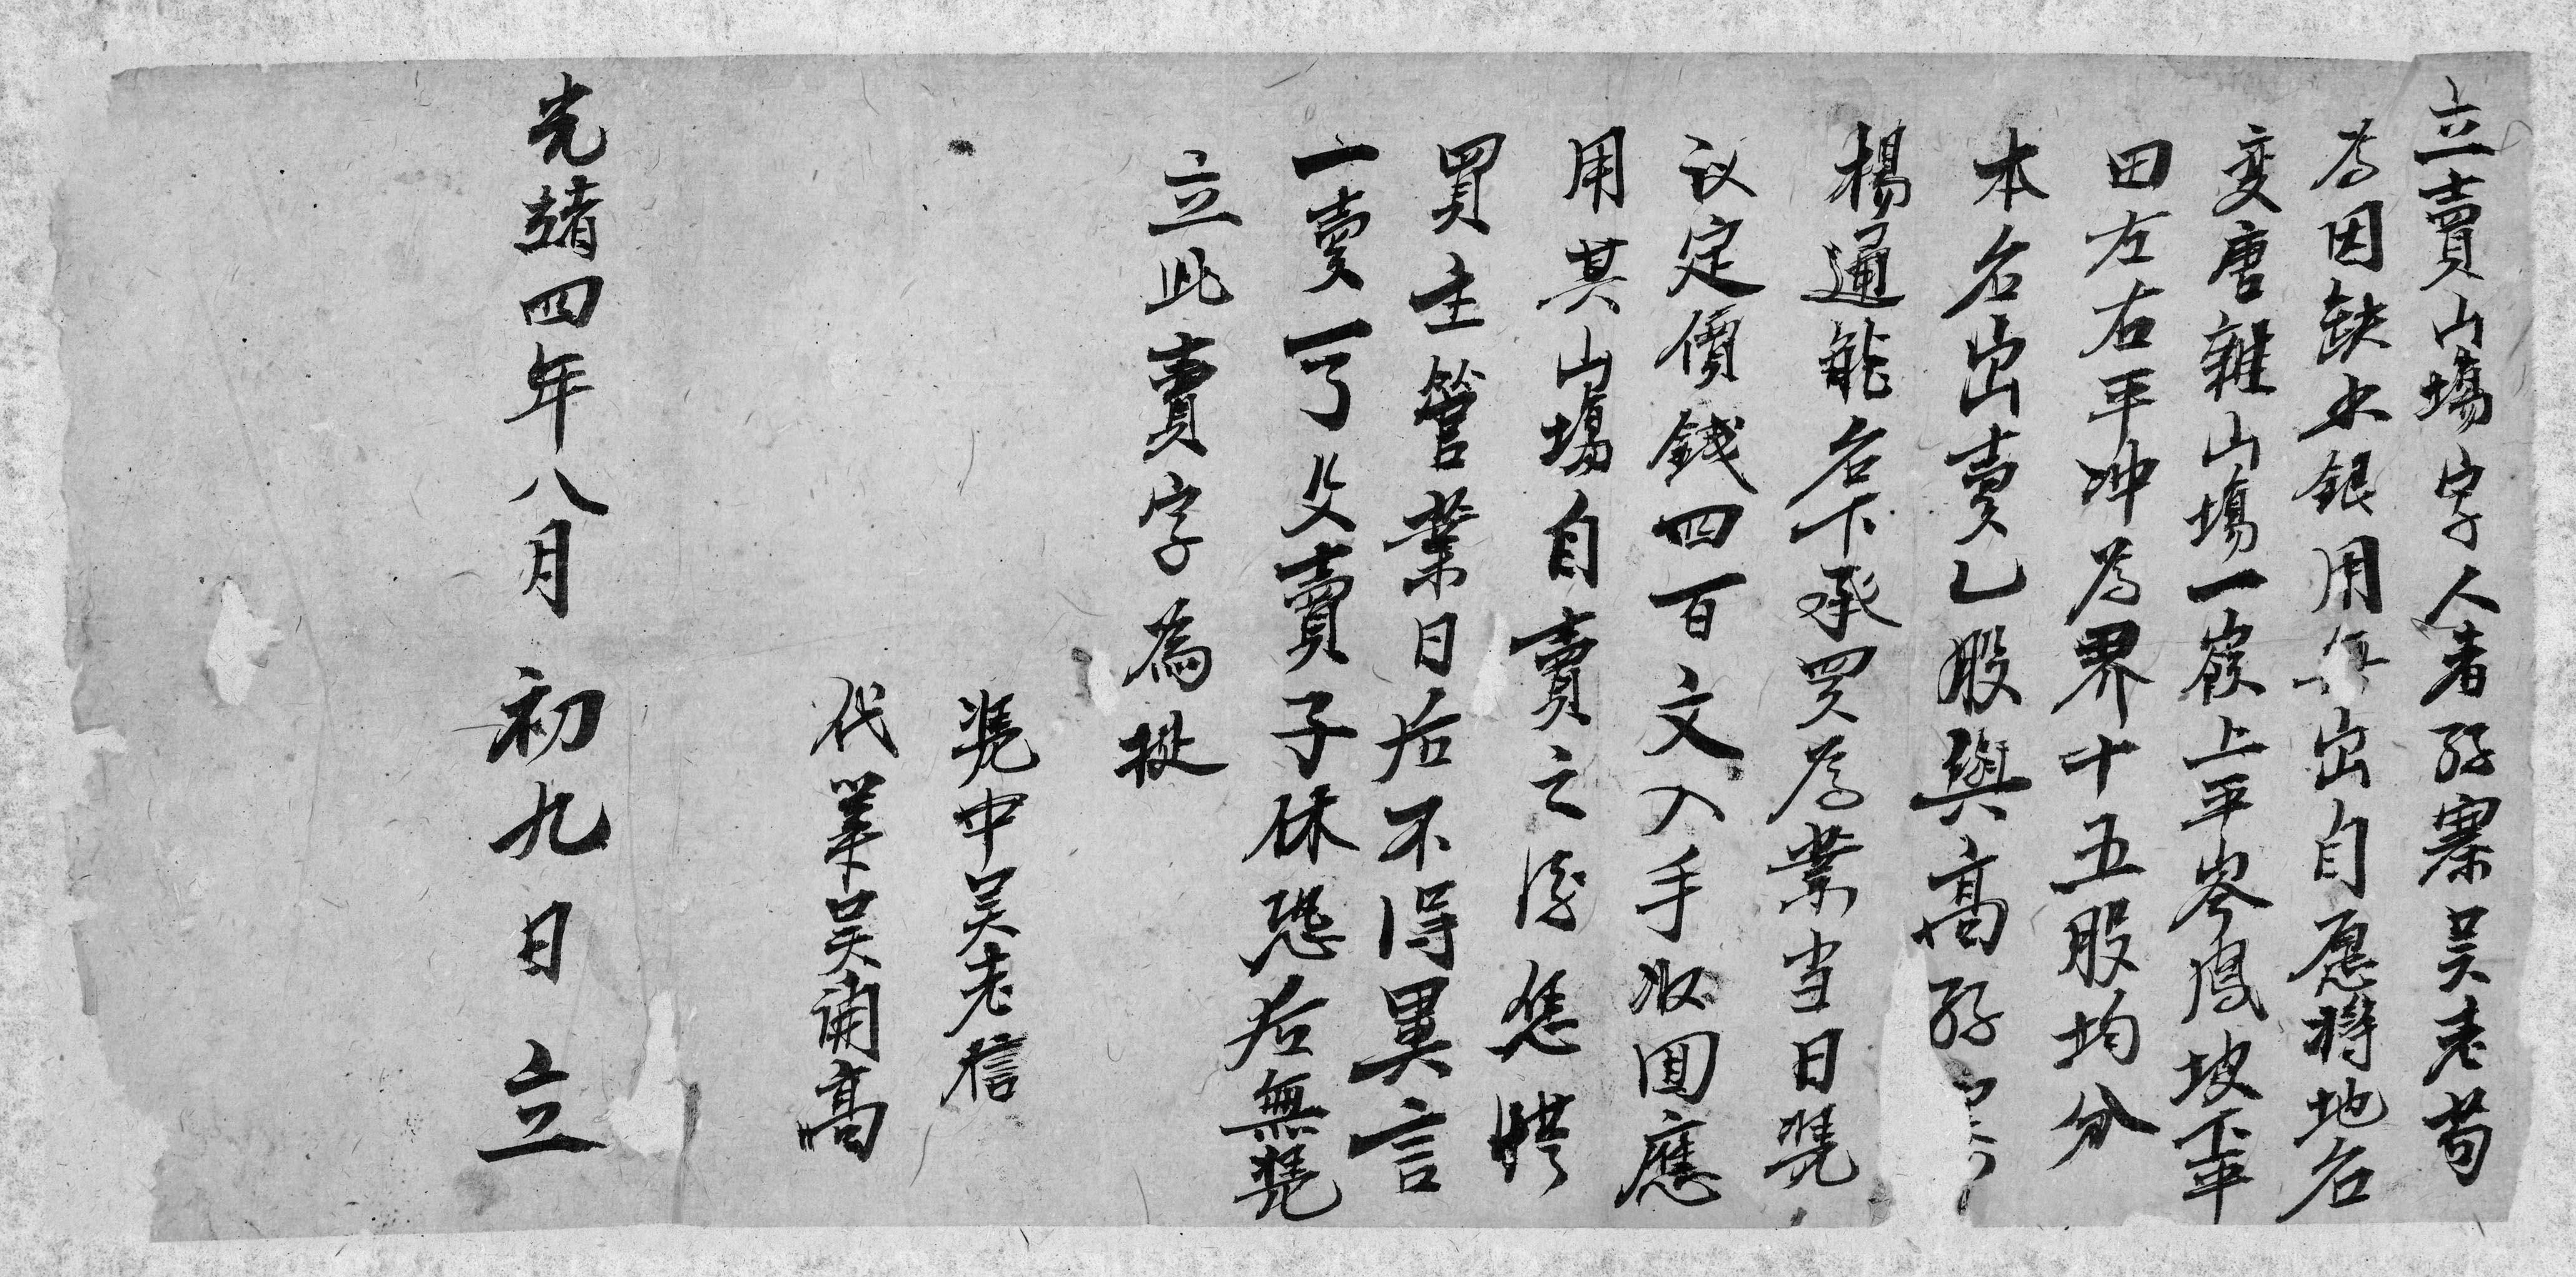 立賣山塲字人者孖寨吳老苟
为因缺少銀用無出自愿將地名
变唐雜山塲一嶺上平岑鳳坡下平
田左右平冲为界十五股均分
本名出賣乙股與高孖
楊通能名下承買为業当日凭
议定價錢四百文入手收回應
用其山塲自賣之後恁憑
買主管業日后不得異言
一賣一了父賣子休恐后無凭
立此賣字為据
凭中吳老信
代筆吳浦高
光緒四年八月初九日立